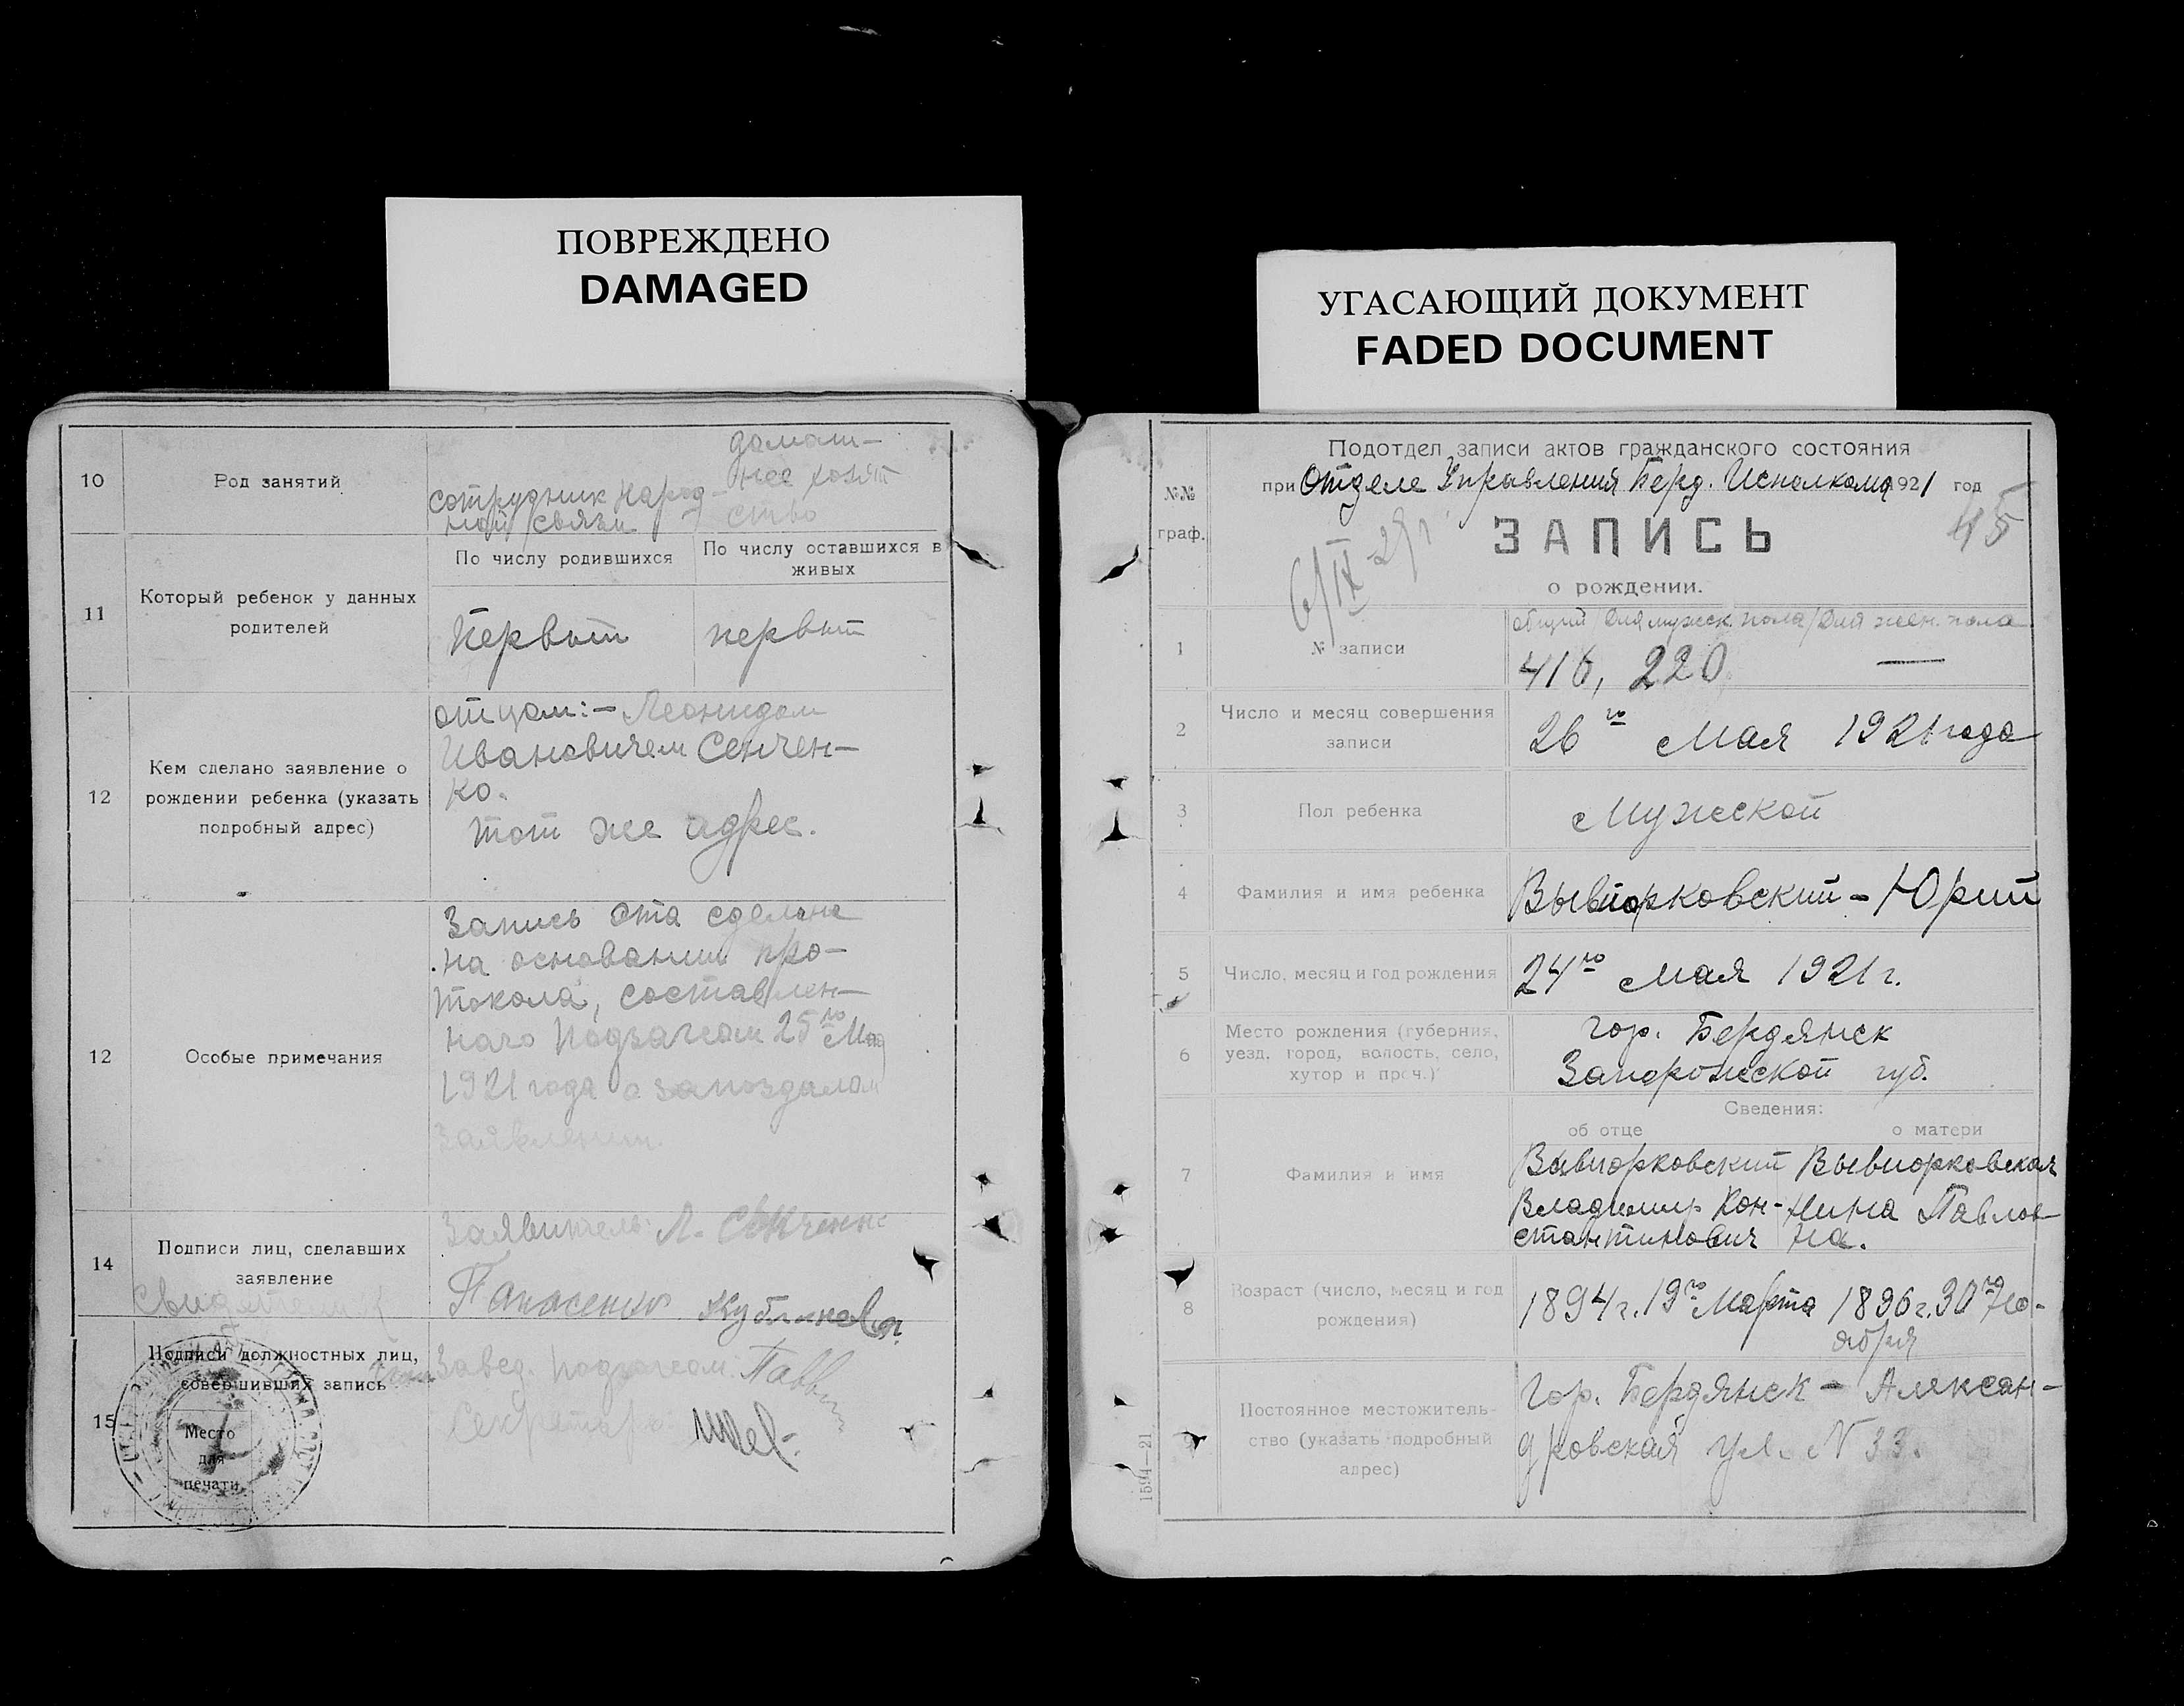 ПОВРЕЖДЕНО
DAMAGED
УГАСАЮЩИЙ ДОКУМЕНТ
FADED DOCUMENT
10
Род занятий
сотрудник Народ-
ной связи
домаш-
нее хозяй
ство
11
Который ребенок у данных
родителей
По числу родившихся
По числу оставшихся в
живых
Первый
первый
12
Кем сделано заявление о
рождении ребенка (указать
подробный адрес)
отцом:- Леонидом
Ивановичем Сенчен-
ко.
тот же адрес.
12
Особые примечания
Запись эта сделана
на основании про-
токола, составлен-
ного Подзагсом 25го Мая
1921 года о запоздалом
заявлении.
14
Подписи лиц, сделавших
заявление
Свидетели
Заявитель: Л. Сенченко
Панасенко
15
Подписи должностных лиц,
совершивших запись
Место
для
печати
Завед. Подзагсом:
Секретарь
№№
граф.
Подотдел записи актов гражданского состояния
при Отделе Управления Берд. Исполкома 1921 год
45
ЗАПИСЬ
о рождении.
1
№ записи
общий / для мужск. пола / для жен. пола
416, 220 —
2
Число и месяц совершения
записи
26го Мая 1921 года
3
Пол ребенка
Мужской
4
Фамилия и имя ребенка
Вывиорковский - Юрий
5
Число, месяц и год рождения
24го Мая 1921 г.
6
Место рождения (губерния,
уезд, город, волость, село,
хутор и проч.)
гор. Бердянск
Запорожской губ.
Сведения:
об отце
о матери
7
Фамилия и имя
Вывиорковский
Владимир Кон-
стантинович
Вывиорковская
Нина Павлов
на.
8
Возраст (число, месяц и год
рождения)
1894 г. 19го Марта
1896 г. 30го Но-
ября
9
Постоянное местожитель-
ство (указать подробный
адрес)
Гор. Бердянск - Алексан-
дровская ул. N 33.
1594—21